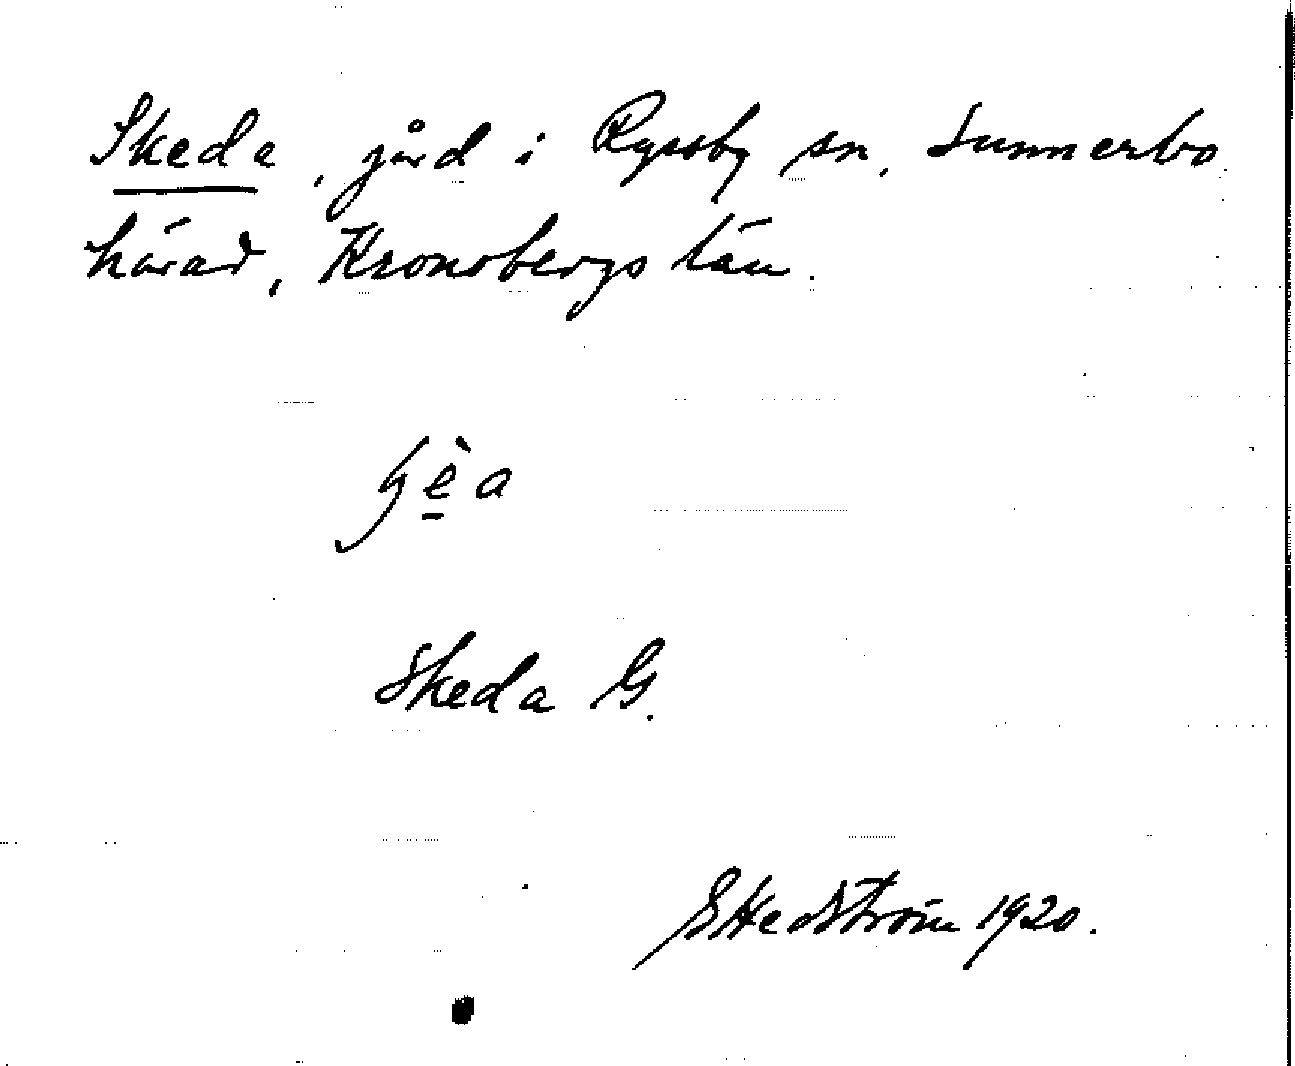 Skeda, jård i Ryssby sn, Sunnerbo
härad, Kronobergs län.
Skeda G.
G Hedström 1920.